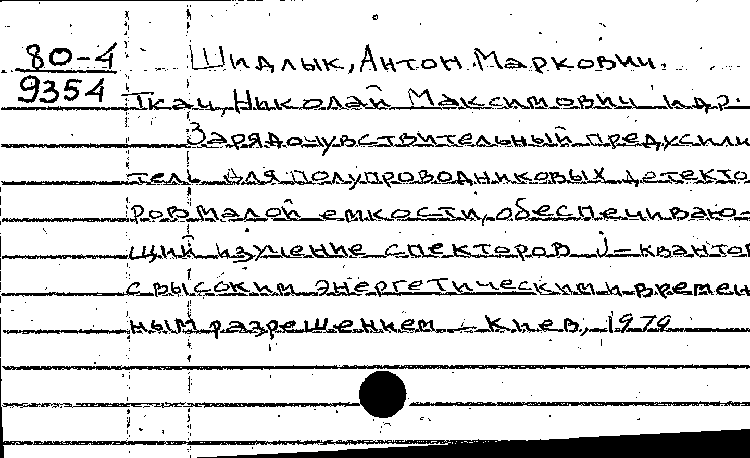 80-4
9354
Шидлык, Антон Маркович.
Ткач, Николай Максимович и др.
Зарядочувствительный предусили
тель для полупроводниковых детекто
ров малой емкости, обеспечиваю-
щий изучение спекторов J-квантов
с высоким энергетическим и времен
ным разрешением - Киев, 1979